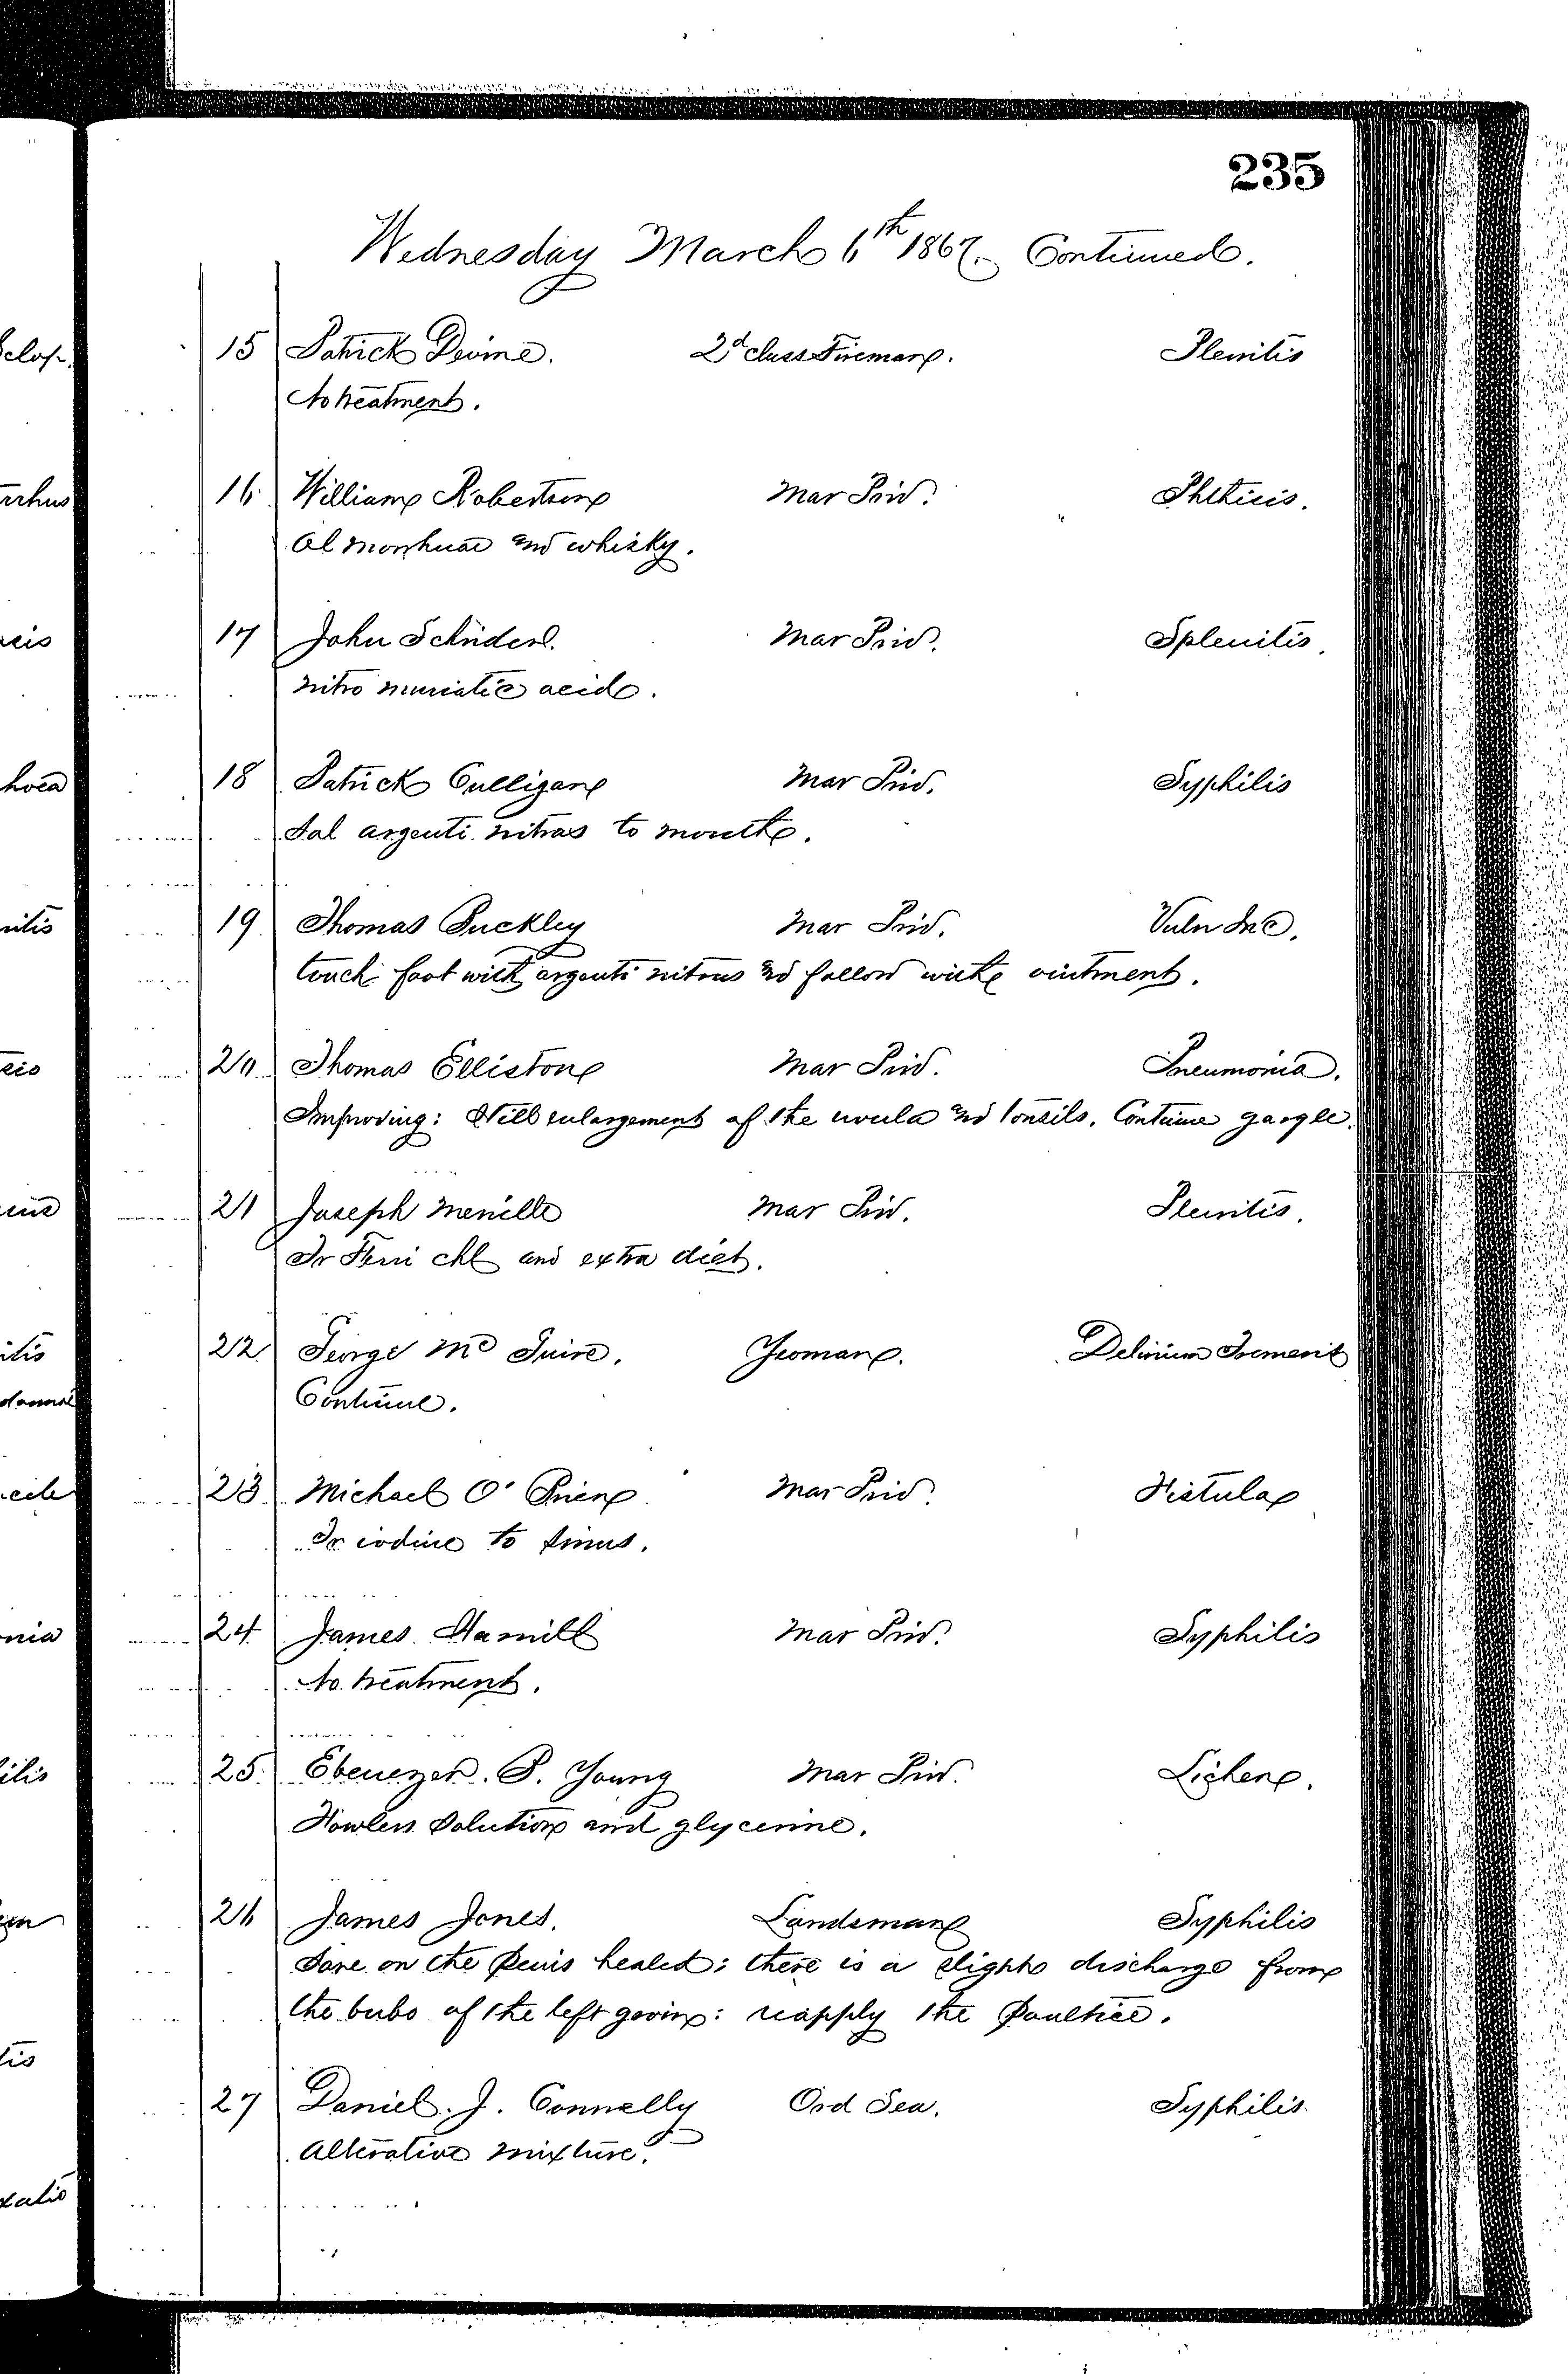 235
Wednesday March 6th 1867. Continued.
15 Patrick Devine. 2d class Fireman. Pleuritis
No treatment.
16 William Robertson Mar Priv. Phthisis.
Ol morrhuae and whisky.
17 John Mar Priv. Splenitis.
Nitro muriatic acid.
18 Patrick Culligan Mar Priv. Syphilis
Sol argenti nitras to mouth.
19 Thomas Buckley Mar Priv. Vuln Inc.
touch foot with argenti nitras and follow with ointment.
20 Thomas Elliston Mar Priv. Pneumonia.
Improving: Still enlargement of the uvula and tonsils. Continue gargle.
21 Joseph Mar Priv. Pleuritis.
Tr Ferri chl and extra diet.
22 George Mc Guire. Yeoman. Delirium Tremens
Continue.
23 Michael O' Brien Mar Priv. Fistula
Tr iodine to sinus.
24 James Hamill Mar Priv. Syphilis
No treatment.
25 Ebenezer. P. Young Mar Priv. Lichen.
Fowlers solution and glycerine.
26 James Jones. Landsman Syphilis
Sore on the penis healed: there is a slight discharge from
the bubo of the left groin: reapply the poultice.
27 Daniel. J. Connelly Ord Sea. Syphilis.
Alterative mixture.